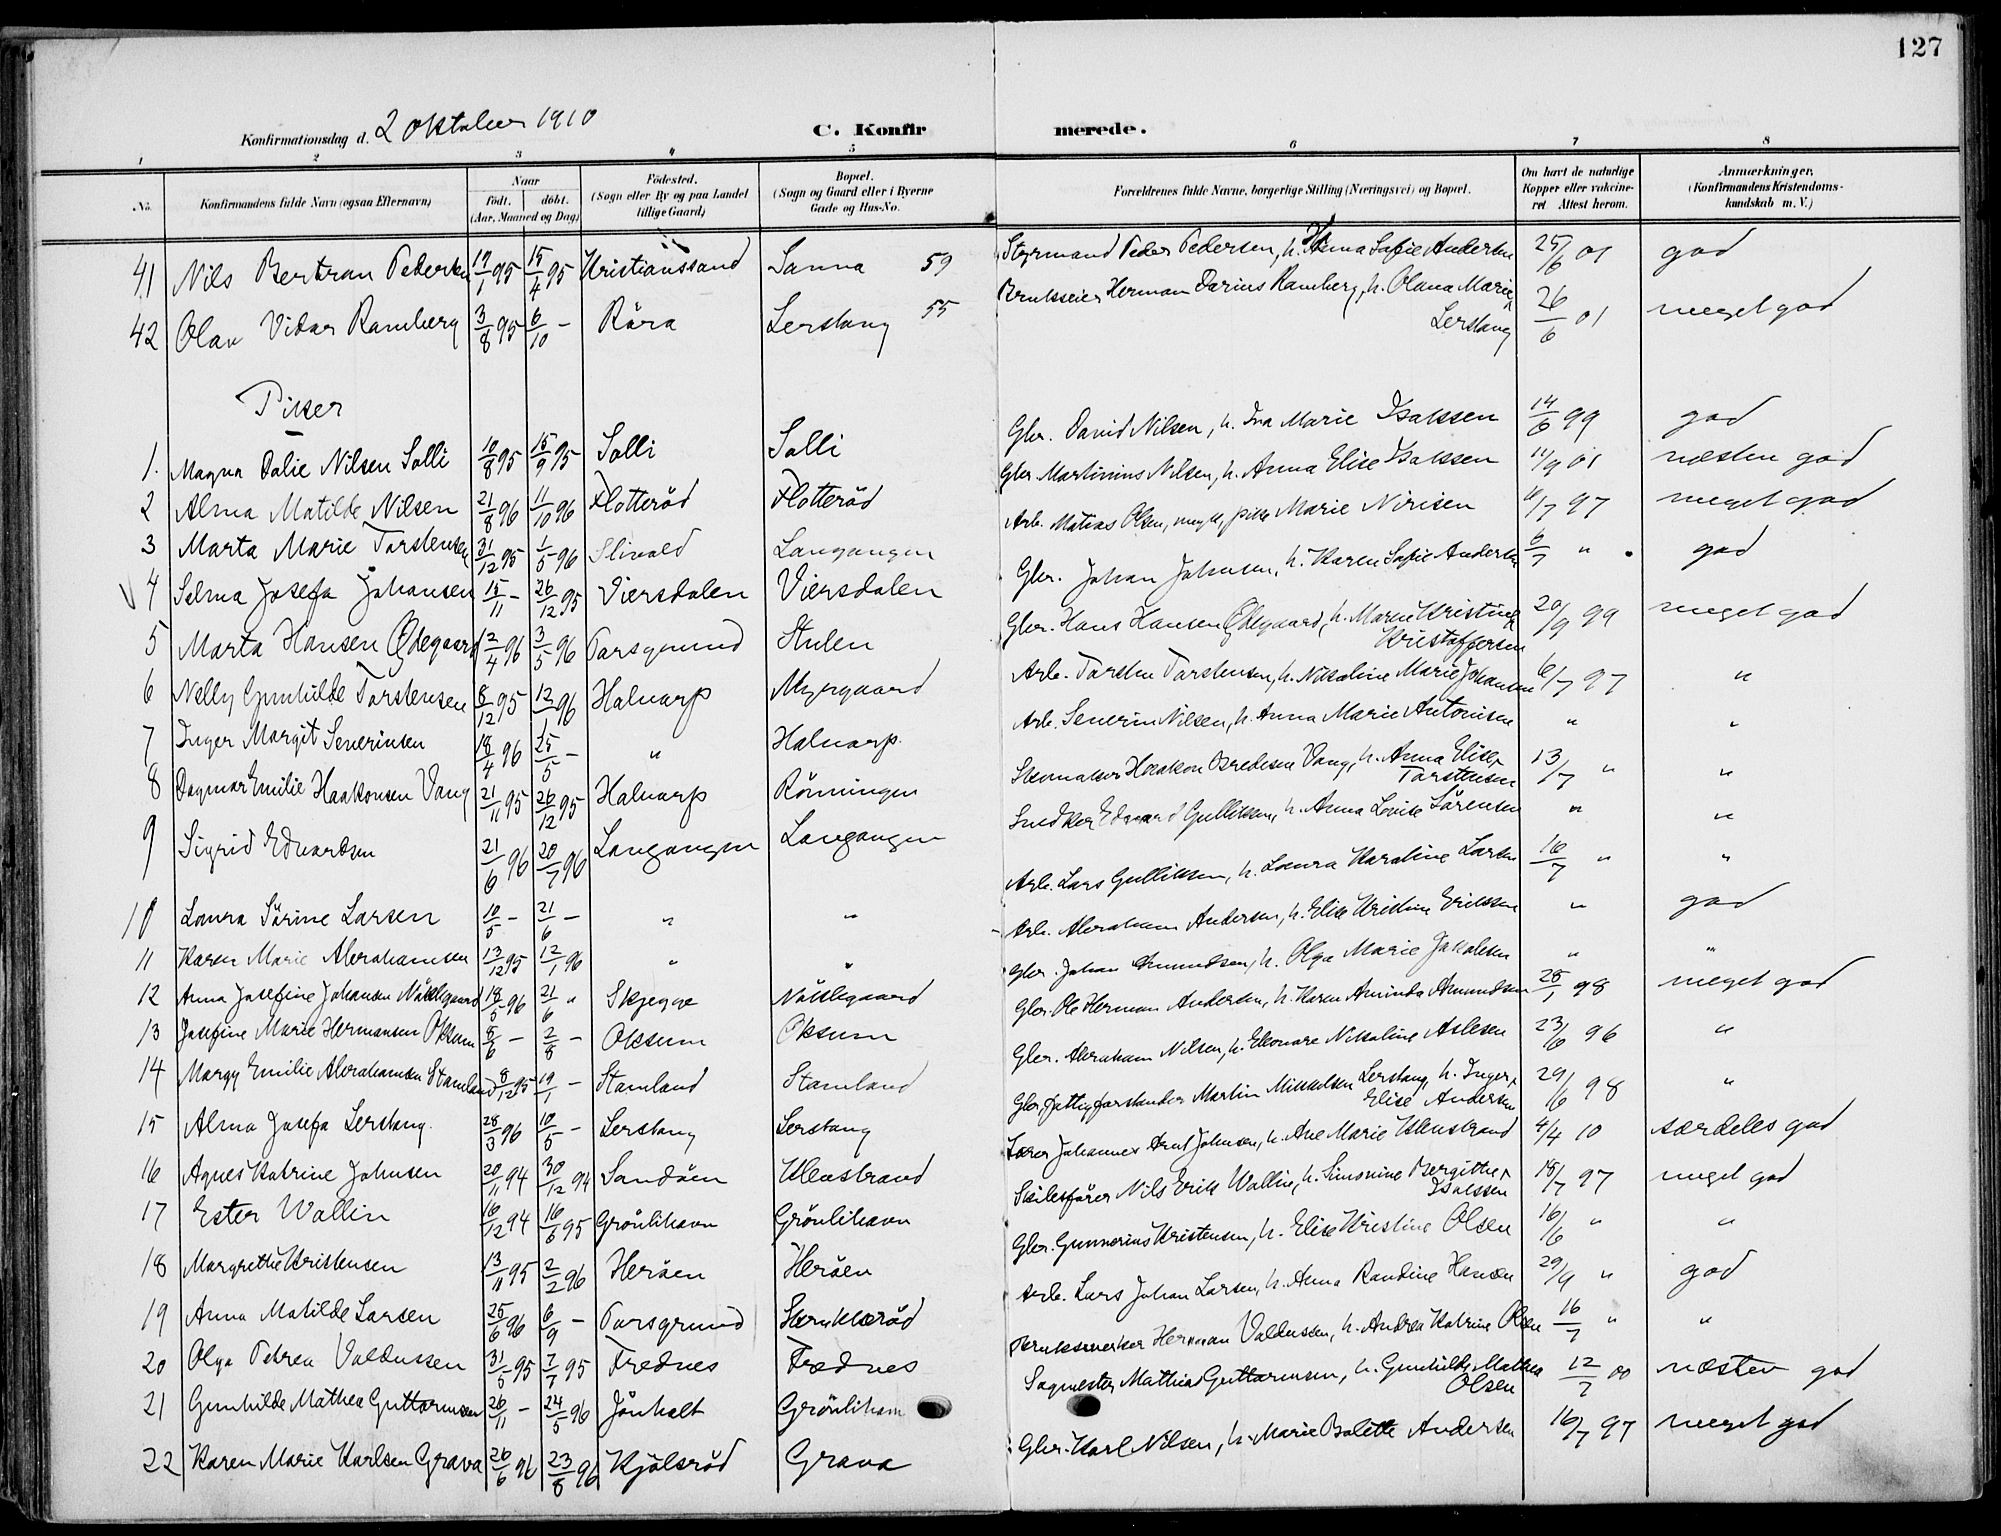 127
Konfirmationsdag d. 2 oktober 1910
C. Konfirmerede.
1 2 3 4 5 6 7 8
No.
Konfirmandens fulde Navn (ogsaa Efternavn)
Naar
födt. döbt.
(Aar, Maaned og Dag)
Födested.
(Sogn eller By og paa Landet
tillige Gaard)
Bopæl.
(Sogn og Gaard eller i Byerne
Gade og Hus-No.
Forældrenes fulde Navne, borgerlige Stilling (Næringsvei) og Bopæl.
Om havt de naturlige
Kopper eller vakcine-
ret. Attest herom.
Anmærkninger,
(Konfirmandens Kristendoms-
kundskab m. V.)
41 Nils Bertran Pedersen 19/1 95 15/4 95 Kristianssand Sanna 59 Styrmand Peder Pedersen, h. Anna Sofie Andersen 25/6 01 god
42 Olav Vidar Ramberg 3/8 95 6/10 - Röra Lerstang 55 Brukseier Herman Darius Ramberg, h. Olana Marie
Lerstang 26/6 01 meget god
Piker
1. Magna Dalie Nilsen Solli 10/8 95 15/9 95 Solli Solli Gbr. David Nilsen, h. Ina Marie Isaksen 14/6 99 god
2 Alma Matilde Nilsen 21/8 96 11/10 96 Flotteröd Flotteröd Gbr. Martinius Nilsen, h. Anna Elise Isaksen 14/9 01 næsten god
3 Marta Marie Torstensen 31/12 95 1/5 96 Langangen Arb. Matias Olsen, Marie 6/7 97 meget god
4 Selma Josefa Johansen 15/11 - 26/12 95 Viersdalen Viersdalen Gbr. Johan Johnsen, h. Karen Sofie Andersen 6/7 " god
5 Marta Hansen Ødegaard 12/4 96 3/5 96 Porsgrund Stulen Gbr. Hans Hansen Ødegaard, h. Maren Kristine
Kristoffersen 20/9 99 meget god
6 Nelly Gunhilde Torstensen 8/12 95 12/1 96 Halvarp Myrgaard Arb. Torsten Torstensen, h. Nikoline Marie Johansen 6/7 97 "
7 Inger Margit Severinsen 18/4 96 25/5 - " Halvarp. Arb. Severin Nilsen, h. Anna Marie Antonisen " "
8 Dagmar Emilie Haakonsen Vang 21/11 95 26/12 95 Halvarp Rönningen Skomaker Haakon Bredesen Vang, h. Anna Elise
Torstensen 13/7 " "
9 Sigrid Edvardsen 21/6 96 20/7 96 Langangen Langangen Snedker Edvard Gulliksen, h. Anna Lovise Sörensen " "
10 Laura Sörine Larsen 10/5 - 21/6 - " " Arb. Lars Gulliksen, h. Laura Karoline Larsen 16/7 " "
11 Karen Marie Abrahamsen 13/12 95 12/1 96 " " Arb. Abraham Andersen, h. Elise Kristine Eriksen " god
12 Anna Josefine Johansen Nöklegaard 18/5 96 21/6 " Skjegge Nöklegaard Gbr. Johan Amundsen, h. Olga Marie Jakobsen " "
13 Josefine Marie Hermansen Oksum 8/6 - 2/8 - Oksum Oksum Gbr. Ole Herman Andersen, h. Karen Aminda Amundsen 25/1 98 meget god
14 Margy Emilie Abrahamsen Stamland 8/12 95 19/1 - Stamland Stamland Gbr. Abraham Nilsen, h. Eleonore Nikoline Aslesen 23/6 96 "
15 Alma Josefa Lerstang. 28/3 96 10/5 - Lerstang Lerstang Gbr. fattigforstander Martin Mikkelsen Lerstang, h. Inger
Elise Andersen 29/6 98 "
16 Agnes Katrine Johnsen 20/11 94 30/12 94 Sandöen Klevstrand Lærer Johannes Arnt Johnsen, h. Ane Marie Klevstrand 4/4 10 særdeles god
17 Ester Wallin 16/12 94 16/6 95 Grönlihavn Grönlihavn Skibsförer Nils Erik Wallin, h. Simonine Bergithe
Isaksen 15/7 97 meget god
18 Margrethe Kristensen 13/11 95 2/2 96 Heröen Heröen Gbr. Gunnerius Kristensen, h. Elise Kristine Olsen 16/6 " "
19 Anna Matilde Larsen 25/6 96 6/9 - Porsgrund Stornklæröd Arb. Lars Johan Larsen, h. Anna Randine Hansen 29/9 " god
20 Olga Petrea Valdussen 31/5 95 7/7 95 Frednes Frednes Bruksmerker Herman Valdussen, h. Andrea Katrine Olsen 16/7 " "
21 Gunhilde Mathea Guttormsen 26/11 - 24/5 96 Jönholt Grönlihavn Sagmester Mathias Guttormsen, h. Gunhilde Mathea
Olsen 12/7 00 næsten god
22 Karen Marie Karlsen Grava 26/6 96 23/8 96 Kjölsröd Grava Gbr. Karl Nilsen, h. Marie Bolette Andersen 16/7 97 meget god